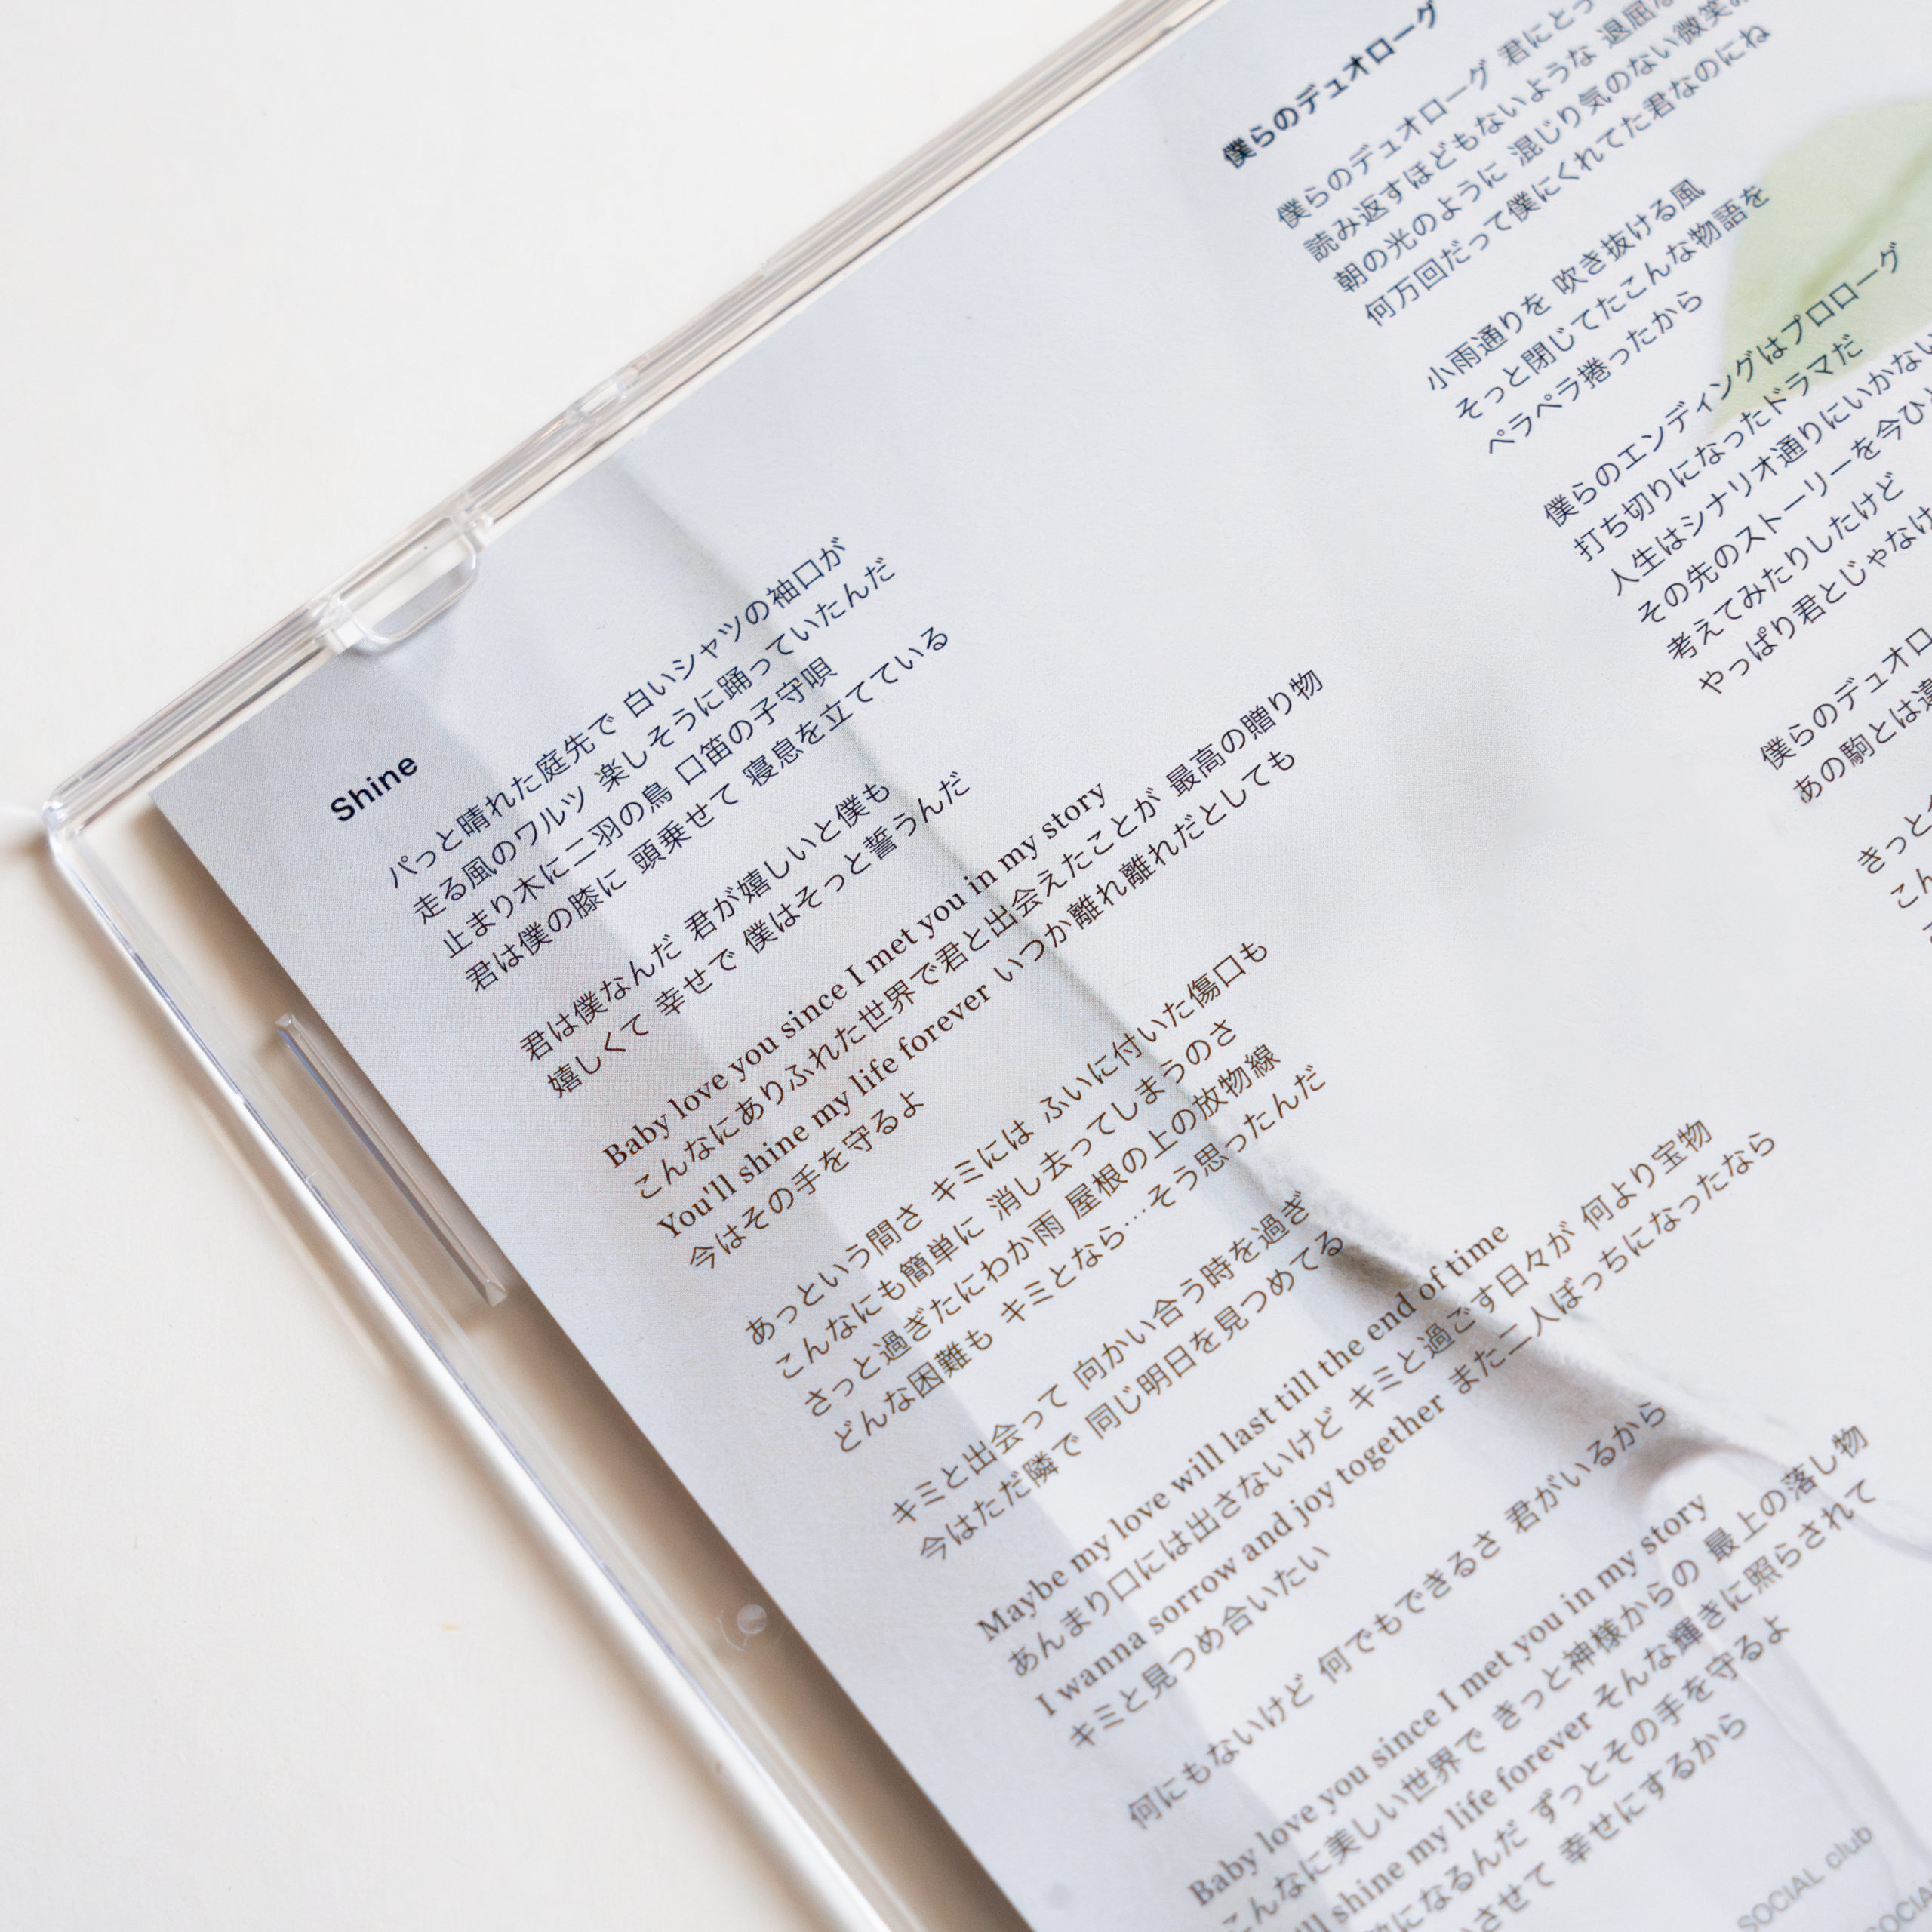 Shine
パっと晴れた庭先で 白いシャツの袖口が
走る風のワルツ 楽しそうに踊っていたんだ
止まり木に二羽の鳥 口笛の子守唄
君は僕の膝に 頭乗せて 寝息を立てている
君は僕なんだ 君が嬉しいと僕も
嬉しくて 幸せで 僕はそっと誓うんだ
Baby love you since I met you in my story
こんなにありふれた世界で君と出会えたことが 最高の贈り物
You'll shine my life forever いつか離れ離れだとしても
今はその手を守るよ
あっという間さ キミには ふいに付いた傷口も
こんなにも簡単に 消し去ってしまうのさ
さっと過ぎたにわか雨 屋根の上の放物線
どんな困難も キミとなら…そう思ったんだ
キミと出会って 向かい合う時を過ぎ
今はただ隣で 同じ明日を見つめてる
Maybe my love will last till the end of time
あんまり口には出さないけど キミと過ごす日々が 何より宝物
I wanna sorrow and joy together また二人ぼっちになったなら
キミと見つめ合いたい
何にもないけど 何でもできるさ 君がいるから
Baby love you since I met you in my story
こんなに美しい世界で きっと神様からの 最上の落し物
shine my life forever そんな輝きに照らされて
になるんだ ずっとその手を守るよ
させて 幸せにするから
SOCIAL club
僕らのデュオローグ
僕らのデュオローグ 君にとっ
読み返すほどもないような 退屈な
朝の光のように 混じり気のない微笑み
何万回だって僕にくれてた君なのにね
小雨通りを 吹き抜ける風
そっと閉じてたこんな物語を
ペラペラ捲ったから
僕らのエンディングはプロローグ
打ち切りになったドラマだ
人生はシナリオ通りにいかない
その先のストーリーを今ひ
考えてみたりしたけど
やっぱり君とじゃなけ
僕らのデュオロ
あの駒とは違
きっと
こん